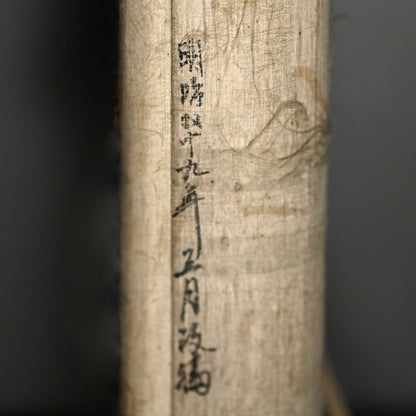 明治廿十九年 五月改編